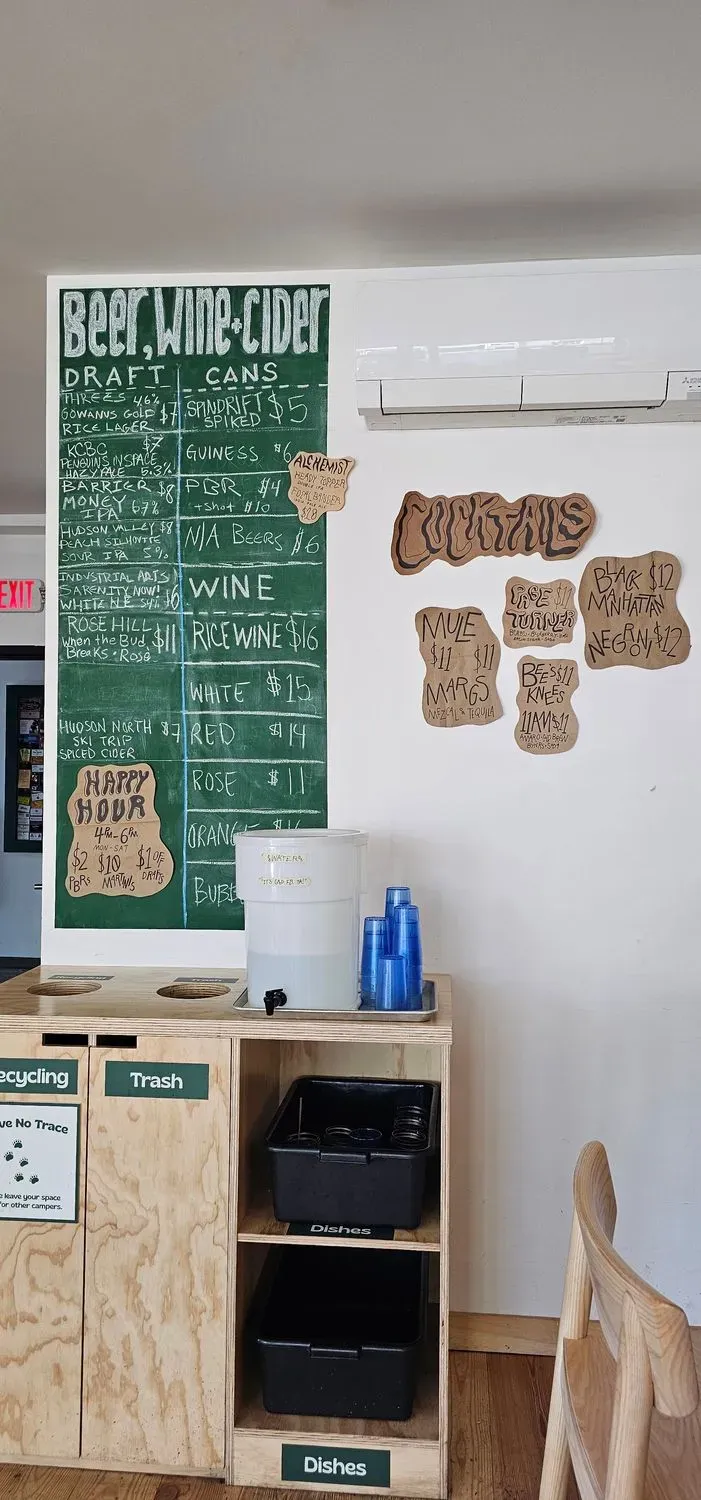 Beer, Wine + Cider
DRAFT
THREES 4.6%
GOWANUS GOLD $7
RICE LAGER
KCBC $7
PENGUINS IN SPACE
HAZY PALE 5.3%
BARRIER $8
MONEY
IPA 6.7%
HUDSON VALLEY $8
PEACH SILHOUETTE
SOUR IPA 5%
INDUSTRIAL ARTS
$6
ROSE HILL $11
When the Bud
Breaks • Rosé
HUDSON NORTH $7
SKI TRIP
SPICED CIDER
CANS
SPINDRIFT $5
SPIKED
GUINESS $6
PBR $4
+ Shot $10
N/A BEERS $6
WINE
RICE WINE $16
WHITE $15
RED $14
ROSE $11
ORANGE
BUBB
ALCHEMIST
HEADY TOPPER
FOCAL BANGER
$28
HAPPY
HOUR
4PM-6PM
MON-SAT
$2 $10 $1 OFF
PBRs MARTINIS DRAFTS
COCKTAILS
MULE
$11 $11
MARGS
MEZCAL & TEQUILA
PAGE $11
TURNER
BEE'S $11
KNEES
11AM $11
BLACK $12
MANHATTAN
NEGRONI $12
WATER
EXIT
Trash
ecycling
Trash
ve No Trace
e leave your space
for other campers.
Dishes
Dishes